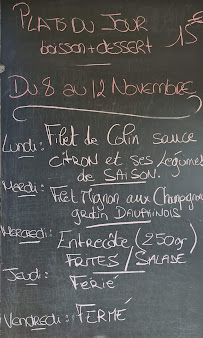 PLATS DU JOUR 15€
boisson + dessert
DU 8 au 12 Novembre
Lundi : Filet de Colin sauce
CITRON et ses légumes
DE SAISON.
Mardi : Filet Mignon aux Champignons
gratin DAUPHINOIS
Mercredi : Entrecôte (250gr)
FRITES / SALADE
Jeudi : Ferié
Vendredi : FERMÉ